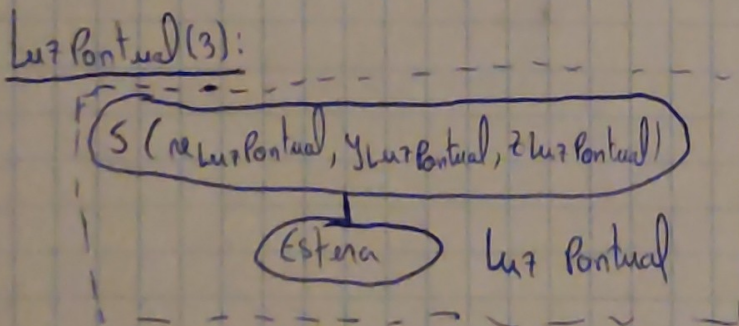 Luz Pontual (3):
S (xLuzPontual, yLuzPontual, zLuzPontual)
Esfera Luz Pontual